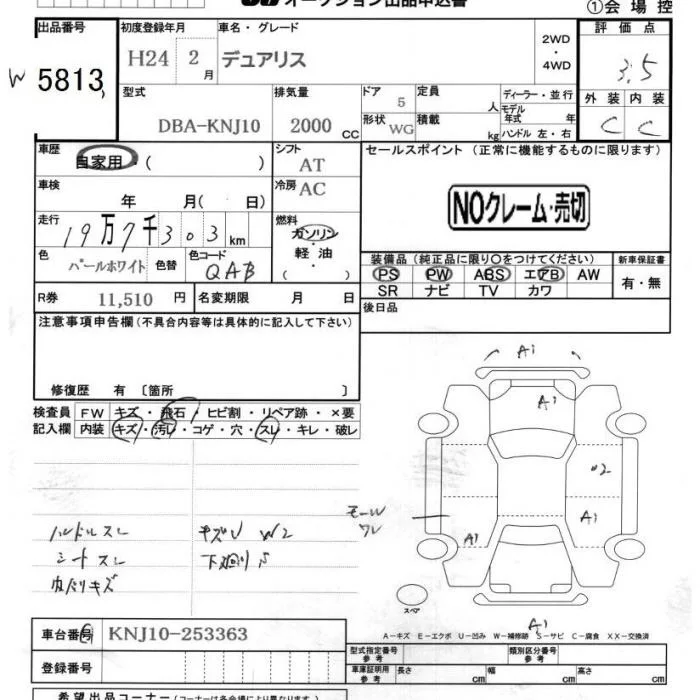 オークション出品申込書
①会場控
出品番号 初度登録年月 車名・グレード 2WD・4WD 評価点
W 5813 H24 2月 デュアリス 3.5
型式 排気量 ドア 定員 ディーラー・並行 外装 内装
DBA-KNJ10 2000 CC 5 人 モデル年式 年 C C
形状 WG 積載 kg ハンドル 左・右
車歴 自家用・( ) シフト AT セールスポイント (正常に機能するものに限ります)
車検 年 月( 日) 冷房 AC
NOクレーム・売切
走行 19万7千303km 燃料 ガソリン・軽油・( )
色 パールホワイト 色替 色コード QAB
装備品 (純正品に限り〇をつけてください) 新車保証書
PS PW ABS エアB AW 有・無
SR ナビ TV カワ
R券 11,510 円 名変期限 月 日 後日品
注意事項申告欄 (不具合内容等は具体的に記入して下さい)
修復歴 有 〔箇所 〕
検査員 FW キズ・飛石・ヒビ割・リペア跡・×要
記入欄 内装 キズ・汚レ・コゲ・穴・スレ・キレ・破レ
A1
A1
U2
モールワレ
A1
A1
A1
ハンドルスレ キズU W2
シートスレ 下廻りS
内張りキズ
スペア
車台番号 KNJ10-253363
A-キズ E-エクボ U-凹み W-補修跡 S-サビ C-腐食 XX-交換済
型式指定番号 参考 類別区分番号 参考
登録番号 車庫証明用 参考 長さ cm 幅 cm 高さ cm
希望出品コーナー